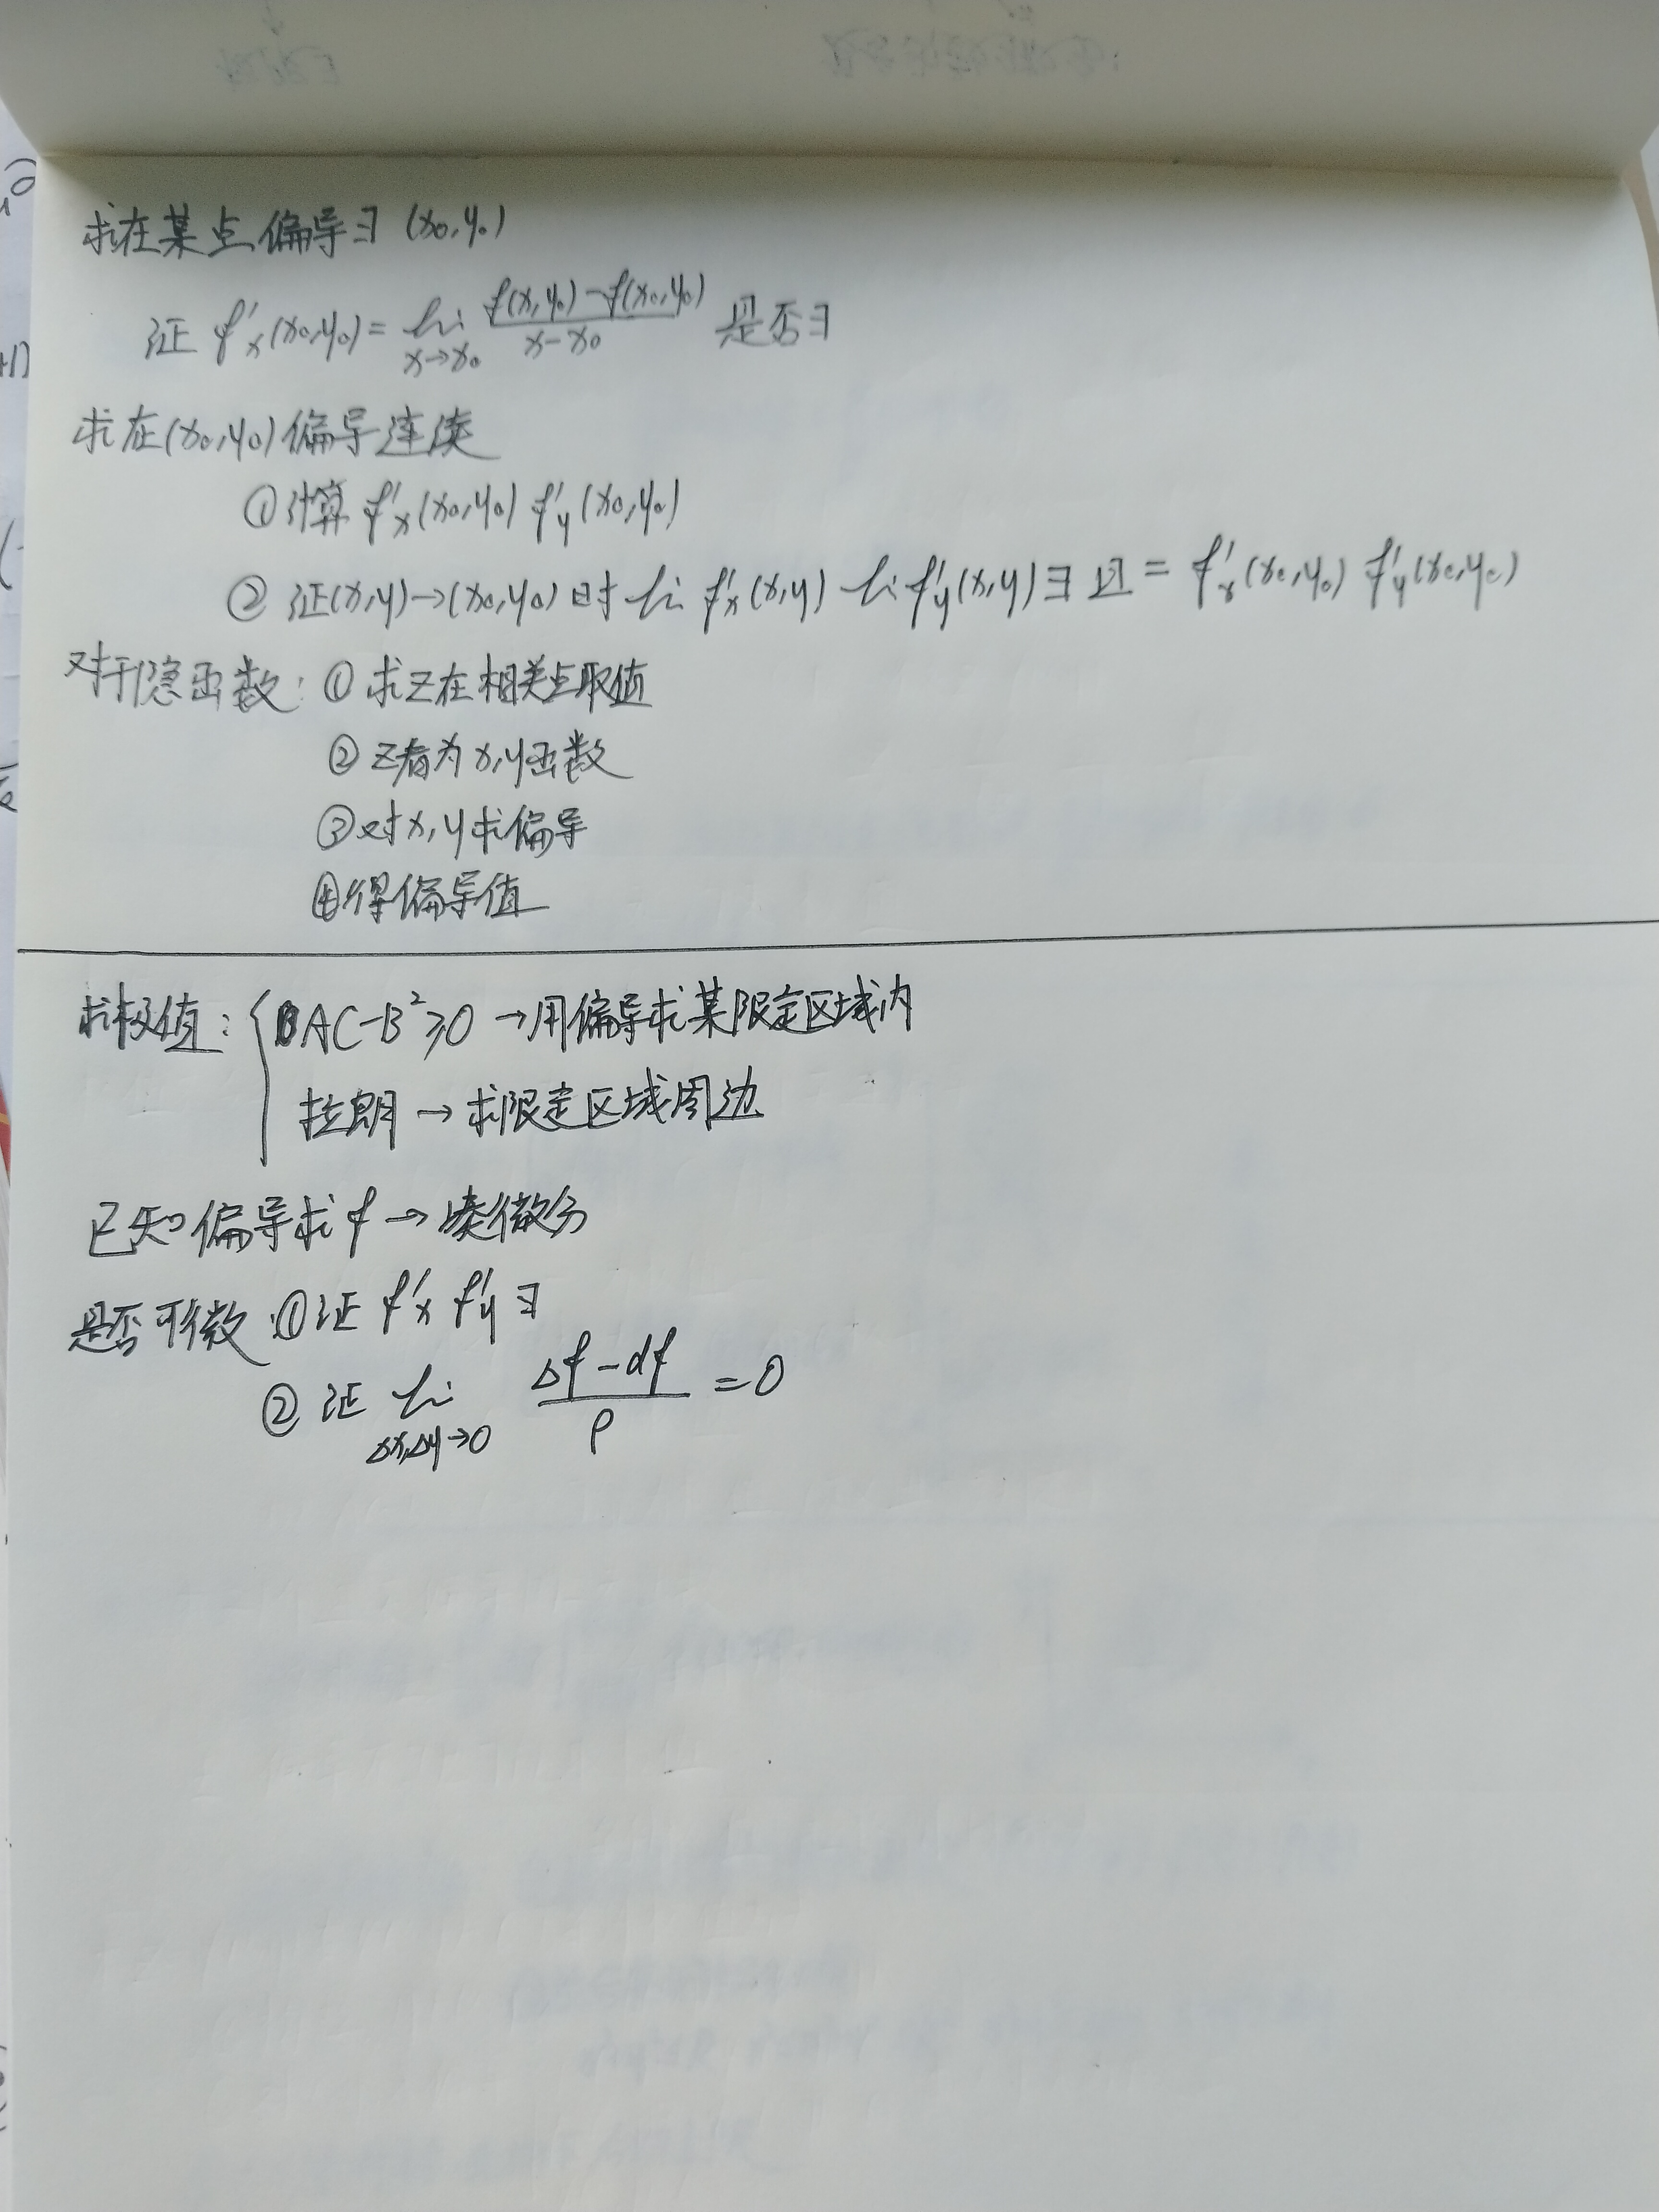 求在某点偏导∃ (x₀,y₀)
证 f'x(x₀,y₀) = lim x→x₀ (f(x,y₀)-f(x₀,y₀))/(x-x₀) 是否∃
求在(x₀,y₀)偏导连续
①计算 f'x(x₀,y₀) f'y(x₀,y₀)
②证(x,y)→(x₀,y₀)时 lim f'x(x,y) lim f'y(x,y)∃且 = f'x(x₀,y₀) f'y(x₀,y₀)
对于隐函数: ①求z在相关点取值
②z看为x,y函数
③对x,y求偏导
④得偏导值
求极值: { AC-B²≥0 →用偏导求某限定区域内
拉朗 → 求限定区域周边
已知偏导求f → 凑微分
是否可微 ①证 f'x f'y ∃
②证 lim Δx,Δy→0 (Δf-df)/ρ = 0